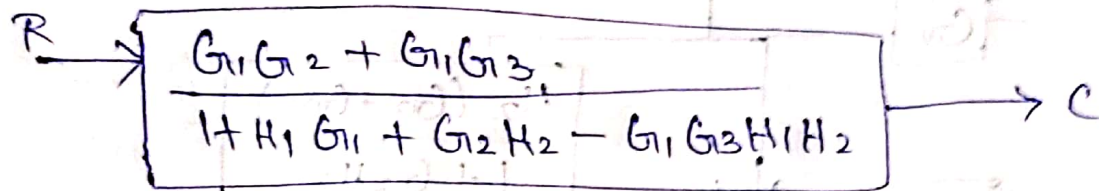 R
G1G2 + G1G3
1 + H1 G1 + G2 H2 - G1 G3 H1 H2
C